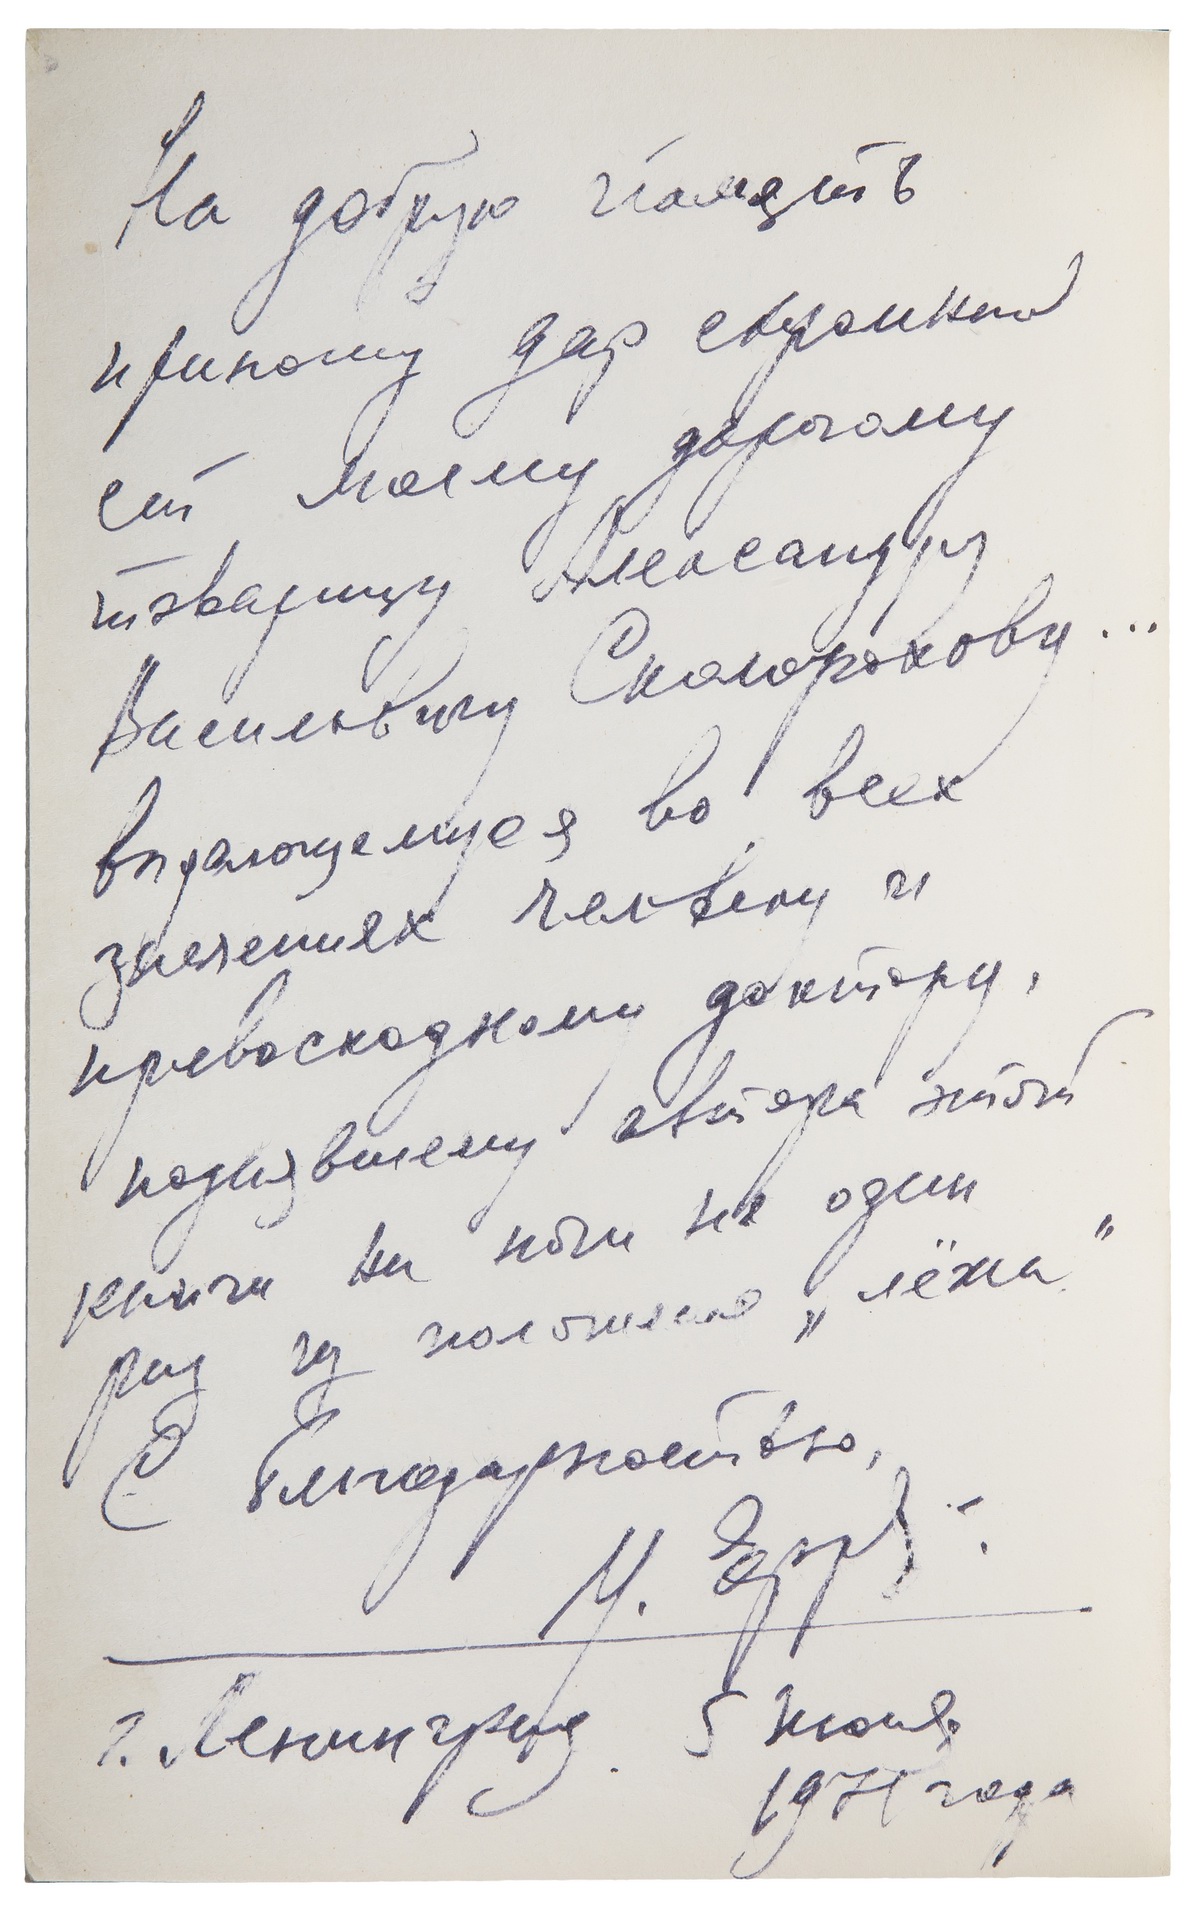 На добрую память
приношу дар скромный
сей моему дорогому
товарищу Александру
Васильевичу Скоморохову...
выдающемуся во всех
значениях человеку и
превосходному доктору,
поднявшему автора этой
книги на ноги не один
раз из положения „лёжа"
С благодарностью,
г. Ленинград. 5 июня
1971 года